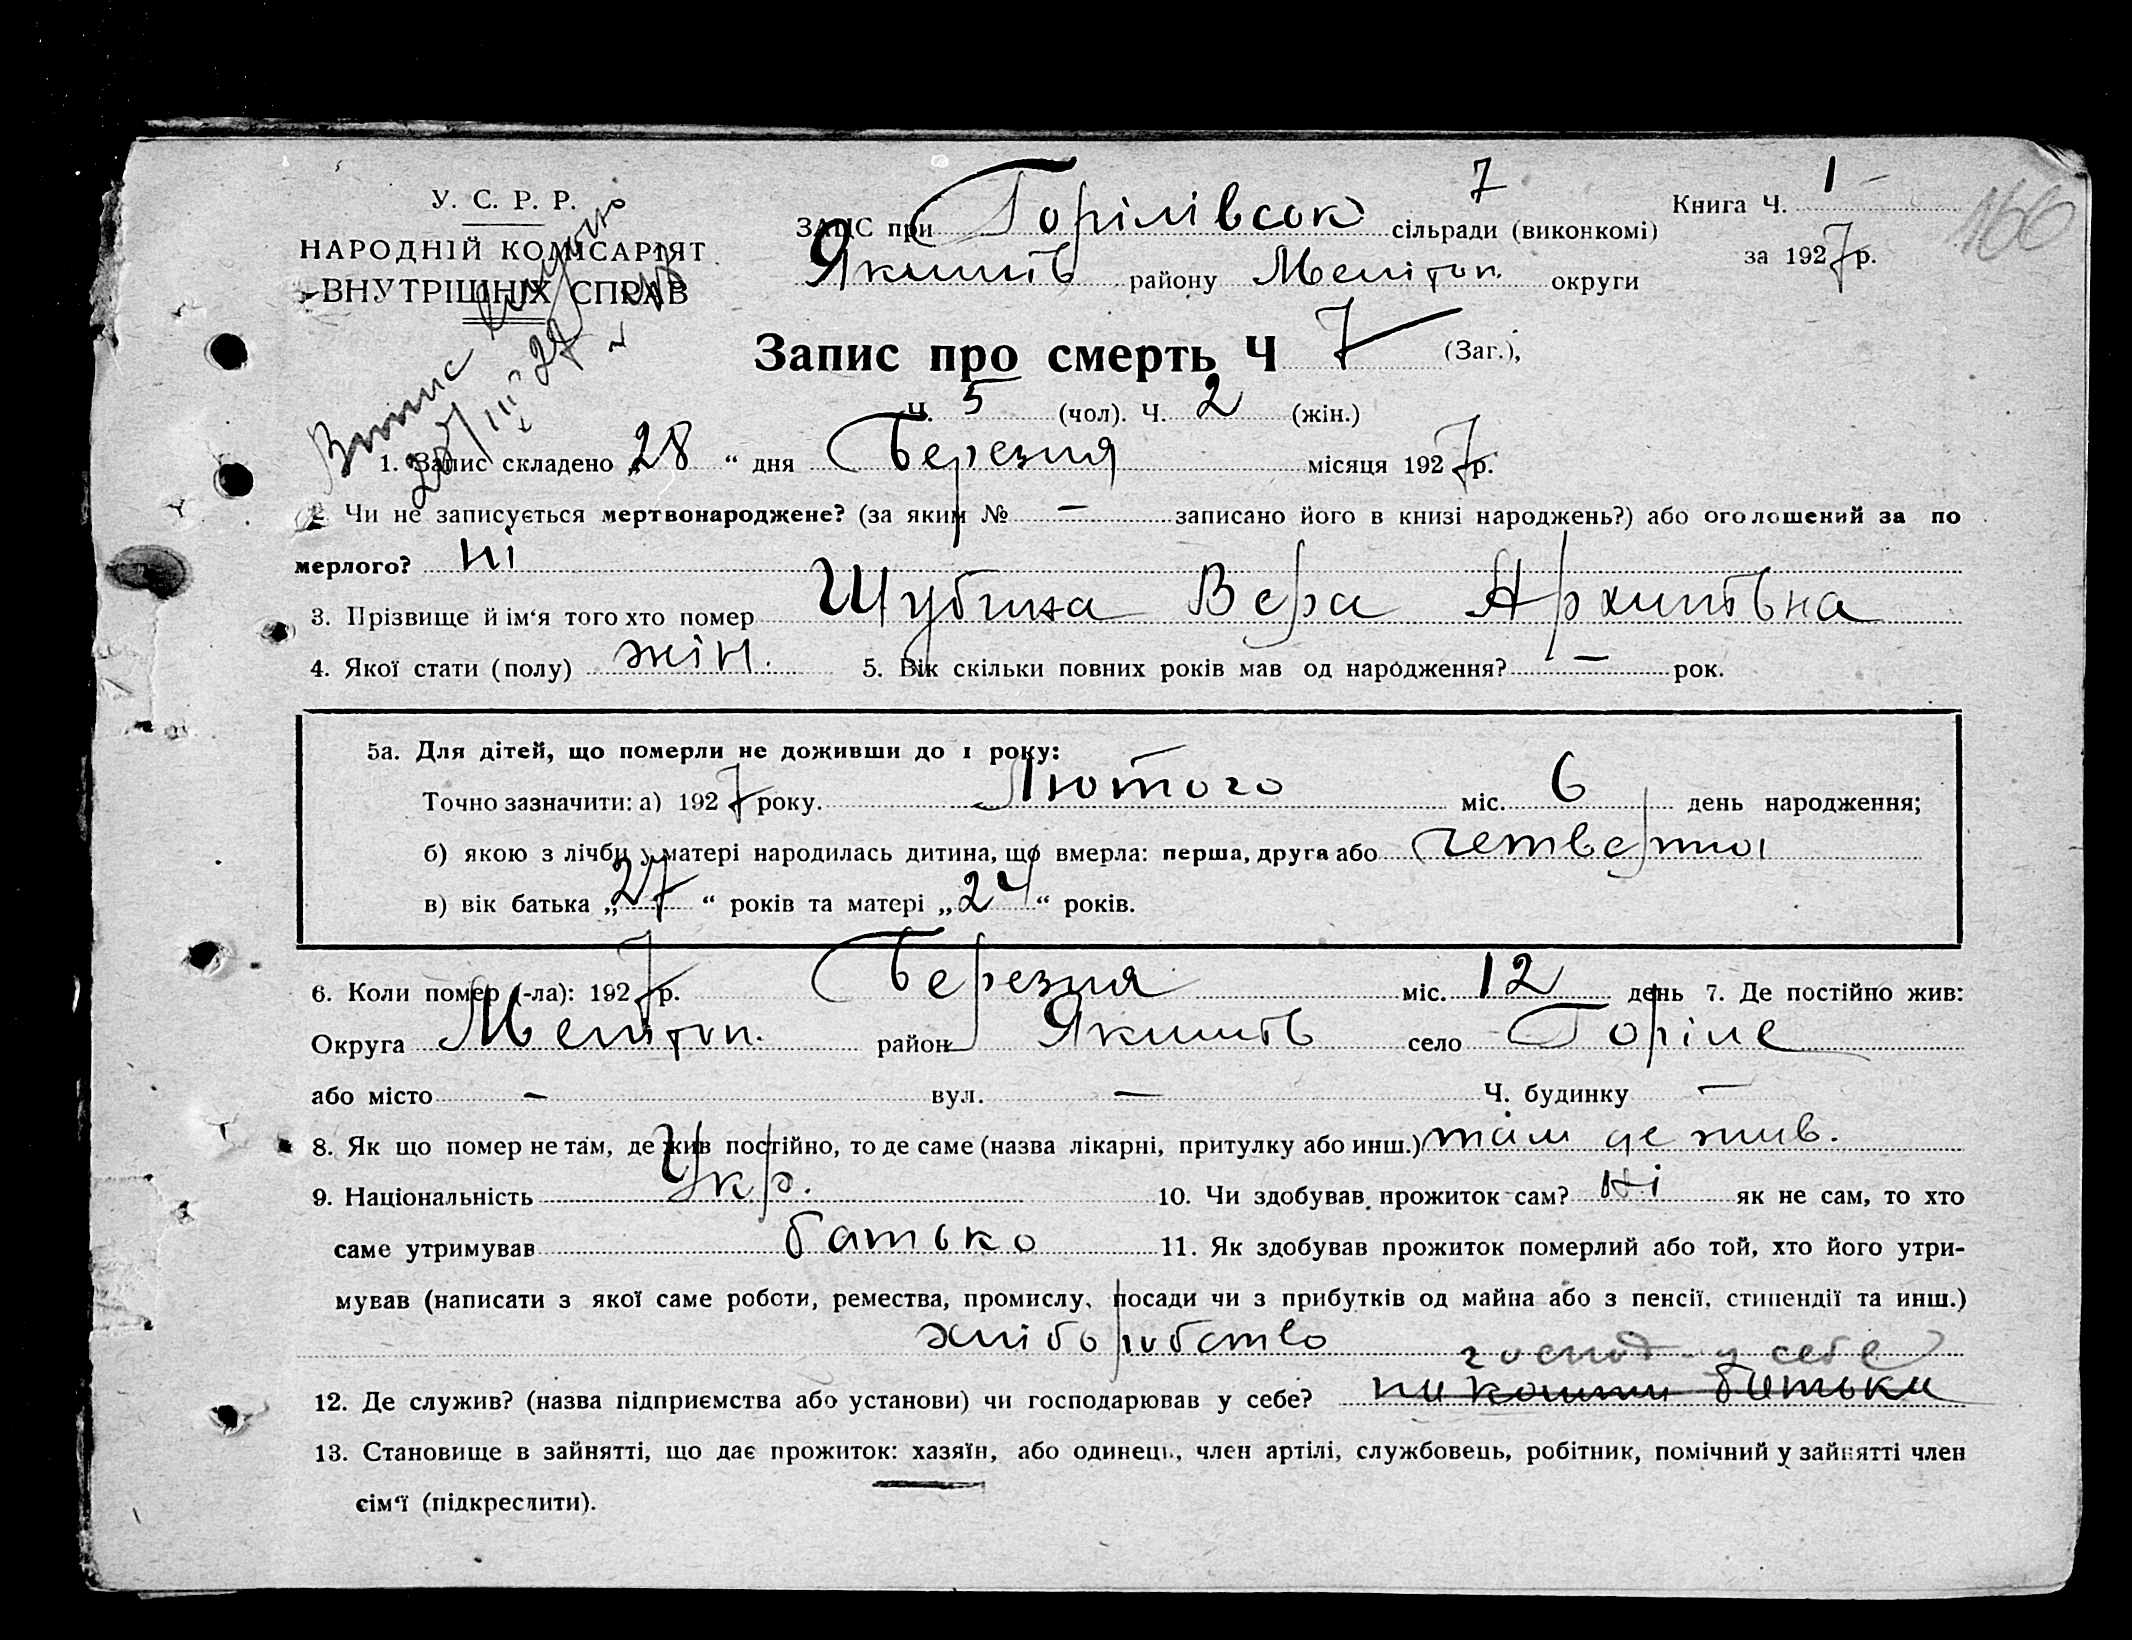 У. С. Р. Р.
НАРОДНІЙ КОМІСАРІЯТ
ВНУТРІШНІХ СПРАВ
Випис
28/III 27
7
ЗАПИС при Горілівськ сільради (виконкомі)
Якимів району Мелітоп. округи
Книга Ч. 1
за 1927 р.
166
Запис про смерть Ч 7 (Заг.),
Ч. 5 (чол). Ч. 2 (жін.)
1. Запис складено „28“ дня Березня місяця 1927 р.
2. Чи не записується мертвонароджене? (за яким № — записано його в книзі народжень?) або оголошений за по
мерлого? ні
3. Прізвище й ім‘я того хто помер Шубина Вера Архипівна
4. Якої стати (полу) жін. 5. Вік скільки повних років мав од народження? — рок.
5а. Для дітей, що померли не доживши до 1 року:
Точно зазначити: а) 1927 року. Лютого міс. 6 день народження;
б) якою з лічби у матері народилась дитина, що вмерла: перша, друга або четверта
в) вік батька „27“ років та матері „24“ років.
6. Коли помер (-ла): 1927 р. Березня міс. 12 день 7. Де постійно жив:
Округа Мелітоп. район Якимів село Горіле
або місто — вул. — Ч. будинку —
8. Як що помер не там, де жив постійно, то де саме (назва лікарні, притулку або инш.) там де жив.
9. Національність Укр. 10. Чи здобував прожиток сам? Ні як не сам, то хто
саме утримував батько 11. Як здобував прожиток померлий або той, хто його утри-
мував (написати з якої саме роботи, ремества, промислу, посади чи з прибутків од майна або з пенсії, стипендії та инш.)
хліборобство
господ. у себе
12. Де служив? (назва підприємства або установи) чи господарював у себе? на кошти батька
13. Становище в зайнятті, що дає прожиток: хазяїн, або одинець, член артілі, службовець, робітник, помічний у зайнятті член
сім‘ї (підкреслити).